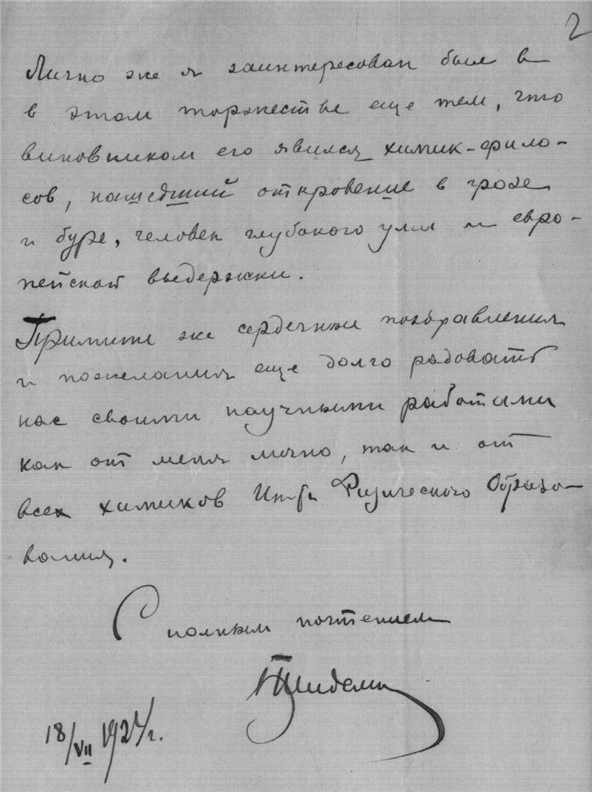 2
Лично же я заинтересован был в
в этом торжестве еще тем, что
виновником его явился химик-фило-
соф, нашедший откровение в грозе
и буре, человек глубокого ума и евро-
пейской выдержки.
Примите же сердечные поздравления
и пожелания еще долго радовать
нас своими научными работами
как от меня лично, так и от
всех химиков Инта Физического Образо-
вания.
С полным почтением
18/VII 1927г.